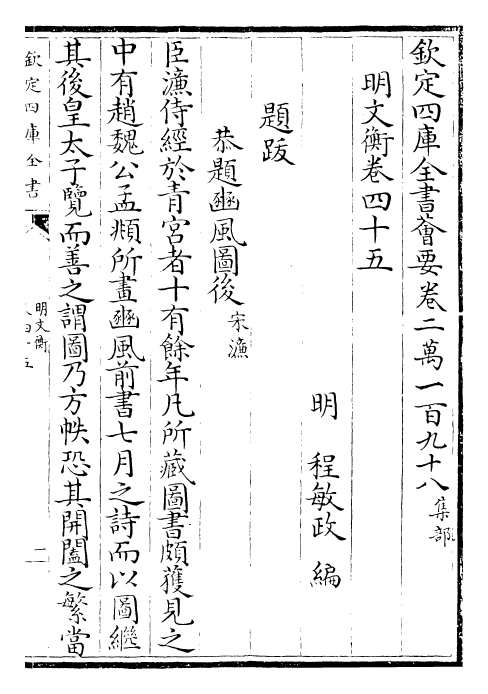 欽定四庫全書薈要卷二萬一百九十八集部
明文衡卷四十五
明程敏政編
題跋
恭題豳風圖後宋濂
臣濂侍經於青宮者十有餘年凡所藏圖書頗獲見之
中有趙魏公孟頫所畫豳風前書七月之詩而以圖繼
其後皇太子覽而善之謂圖乃方帙恐其開闔之繁當
欽定四庫全書
明文衡
二